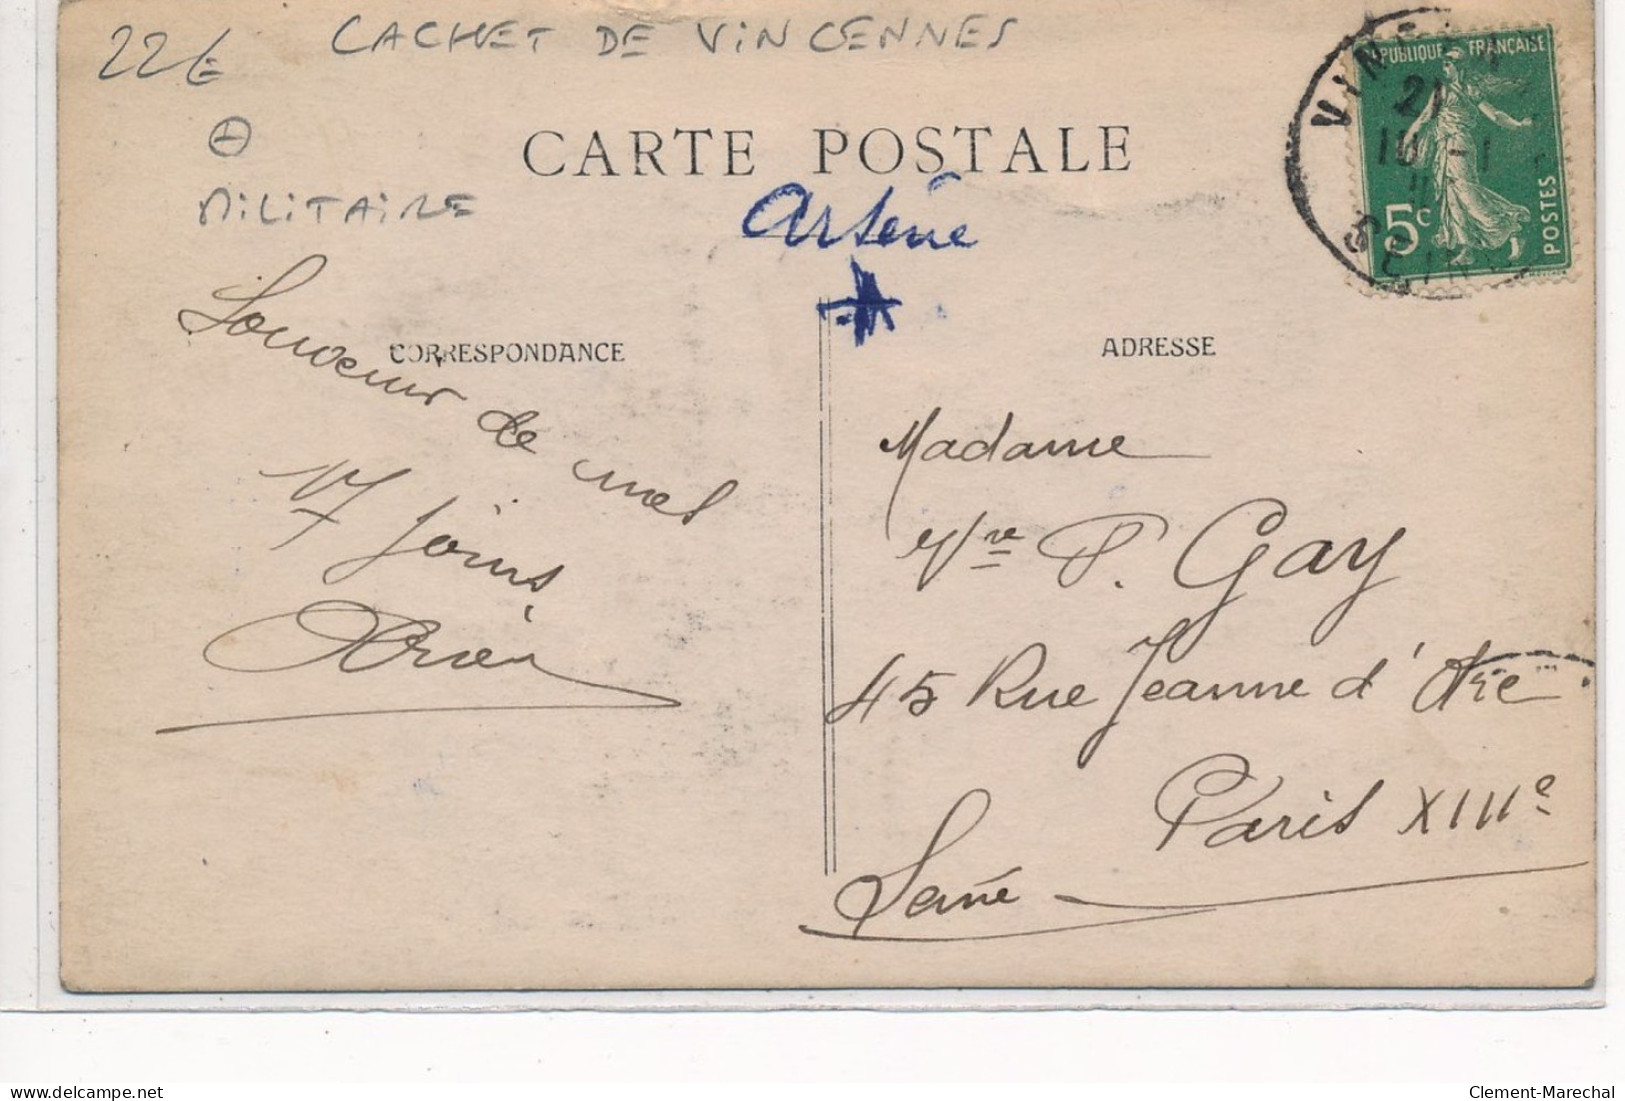 22€ CACHET DE VINCENNES
MILITAIRE
CARTE POSTALE
Arsène
RÉPUBLIQUE FRANÇAISE
5c
POSTES
21
10 -1
CORRESPONDANCE
Souvenir de mes
17 jours
ADRESSE
Madame
Vve P. Gay
45 Rue Jeanne d'Arc
Paris XIIIe
Seine
delcampe.net
Clement-Marechal